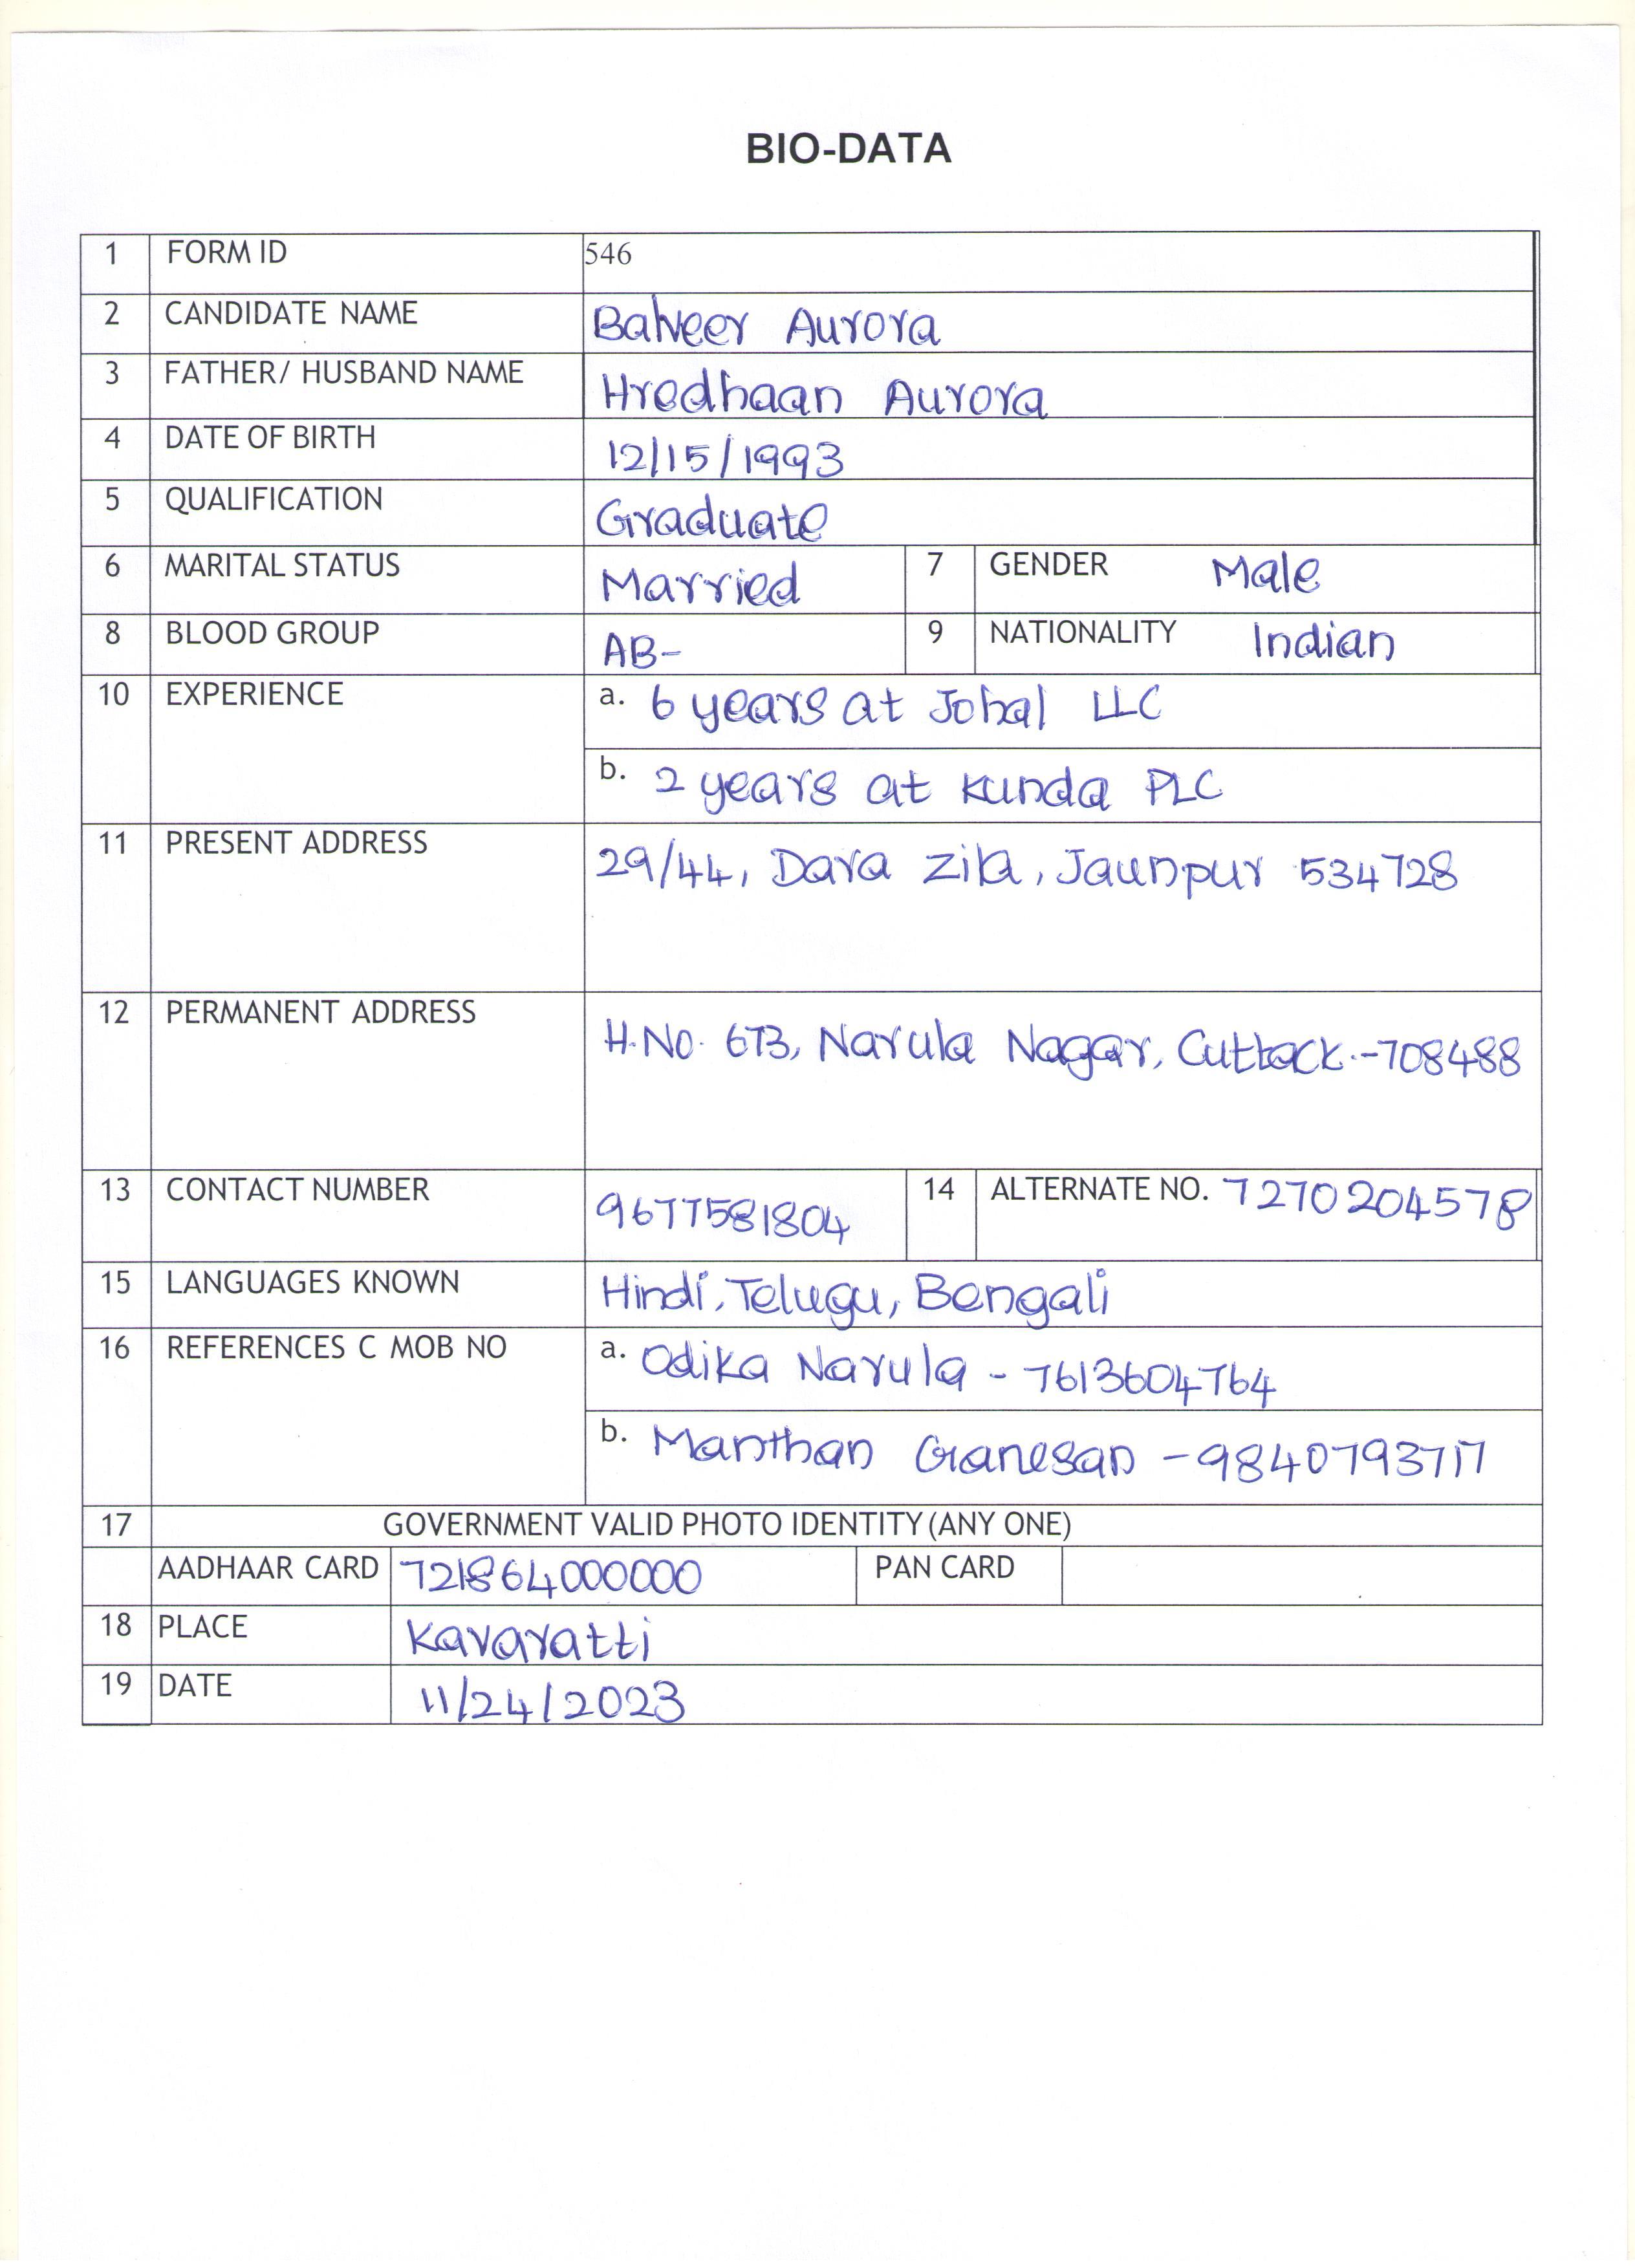 BIO-DATA
1 FORM ID 546
2 CANDIDATE NAME Balveer Aurora
3 FATHER/ HUSBAND NAME Hredhaan Aurora
4 DATE OF BIRTH 12/15/1993
5 QUALIFICATION Graduate
6 MARITAL STATUS Married 7 GENDER Male
8 BLOOD GROUP AB- 9 NATIONALITY Indian
10 EXPERIENCE a. 6 years at Johal LLC
b. 2 years at Kunda PLC
11 PRESENT ADDRESS 29/44, Dara Zila, Jaunpur 534728
12 PERMANENT ADDRESS H.No. 673, Narula Nagar, Cuttack.-708488
13 CONTACT NUMBER 9677581804 14 ALTERNATE NO. 7270204578
15 LANGUAGES KNOWN Hindi, Telugu, Bengali
16 REFERENCES C MOB NO a. Odika Narula - 7613604764
b. Manthan Ganesan - 9840793717
17 GOVERNMENT VALID PHOTO IDENTITY (ANY ONE)
AADHAAR CARD 721864000000 PAN CARD
18 PLACE Kavaratti
19 DATE 11/24/2023